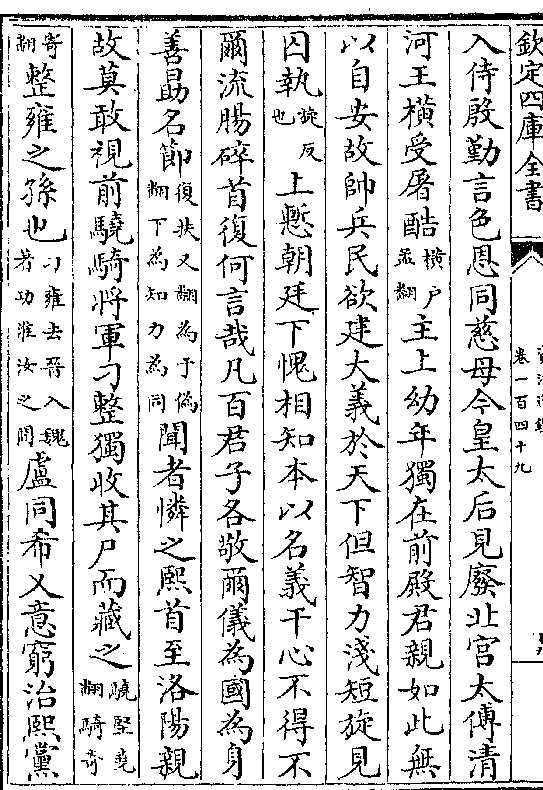 欽定四庫全書
卷一百四十九
入侍殷勤言色恩同慈母今皇太后見廢北宮太傅清
河王橫受屠酷橫户孟翻主上幼年獨在前殿君親如此無
以自安故帥兵民欲建大義於天下但智力淺短旋見
囚執旋反也上慙朝廷下愧相知本以名義干心不得不
爾流腸碎首復何言哉凡百君子各敬爾儀為國為身
善勗名節復扶又翻為于偽翻下為知力為同聞者憐之熙首至洛陽親
故莫敢視前驍騎將軍刁整獨收其尸而藏之驍堅堯翻騎奇
寄翻整雍之孫也刁雍去晉入魏著功淮汝之間盧同希乂意窮治熙黨